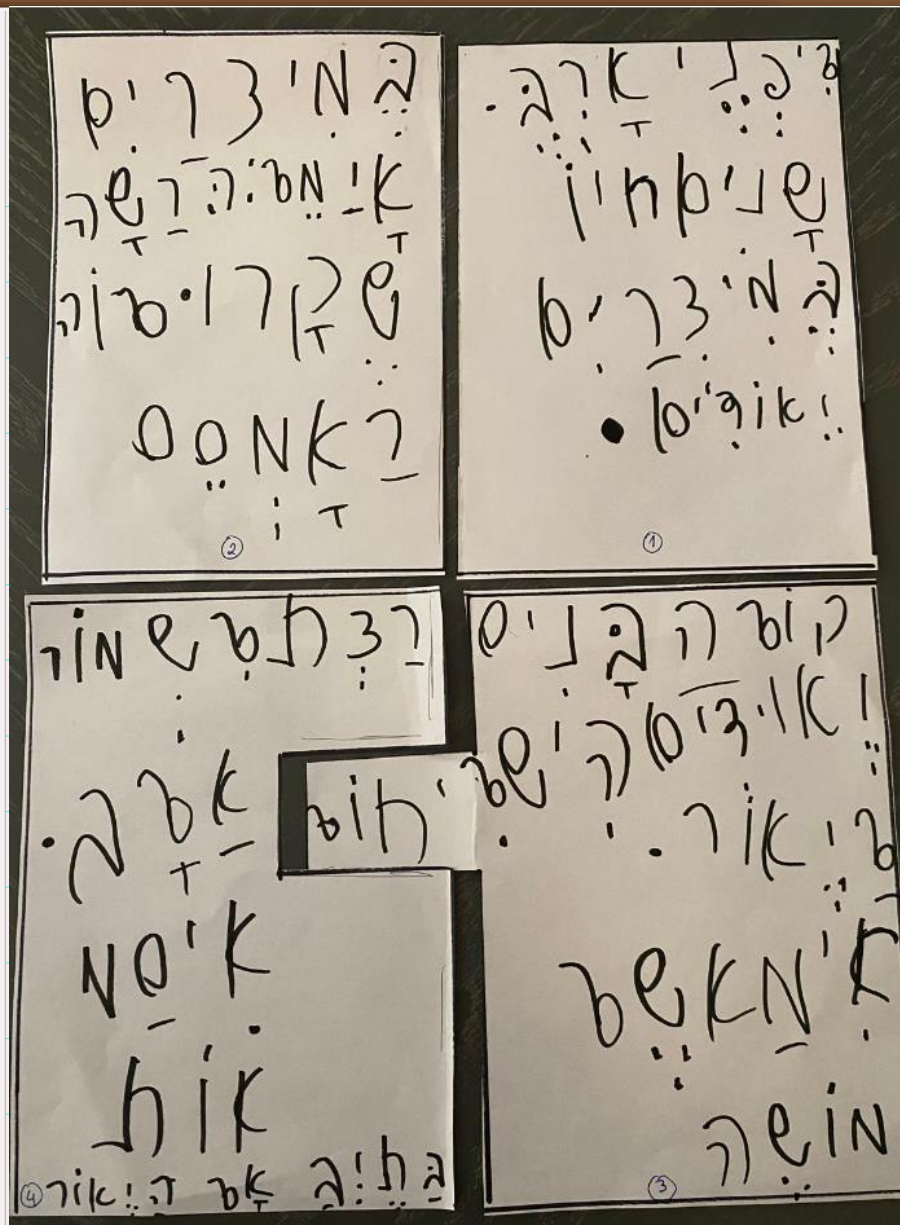 לִיפְּנֵי אָרְבֶּ.
שָנִים חיו
בְּמִיצְרַיִם
יֵאוּדִים.
בְּמִיצְרַיִם
אָיַ מֵלֵה רַשָה
שֶקָרוּ לוה
רַאָמְסֵס
קול הבָּנִים
יֵאוּדִים הִישְלִיחוּל
לַיֵאוֹר.
אִימַאשֶל
מוֹשֶה
רַצְתלִשְמוֹר
אַלָב.
אִיסַמ
אוֹת
בַּתֵיבָ אַל הַיֵאוֹר